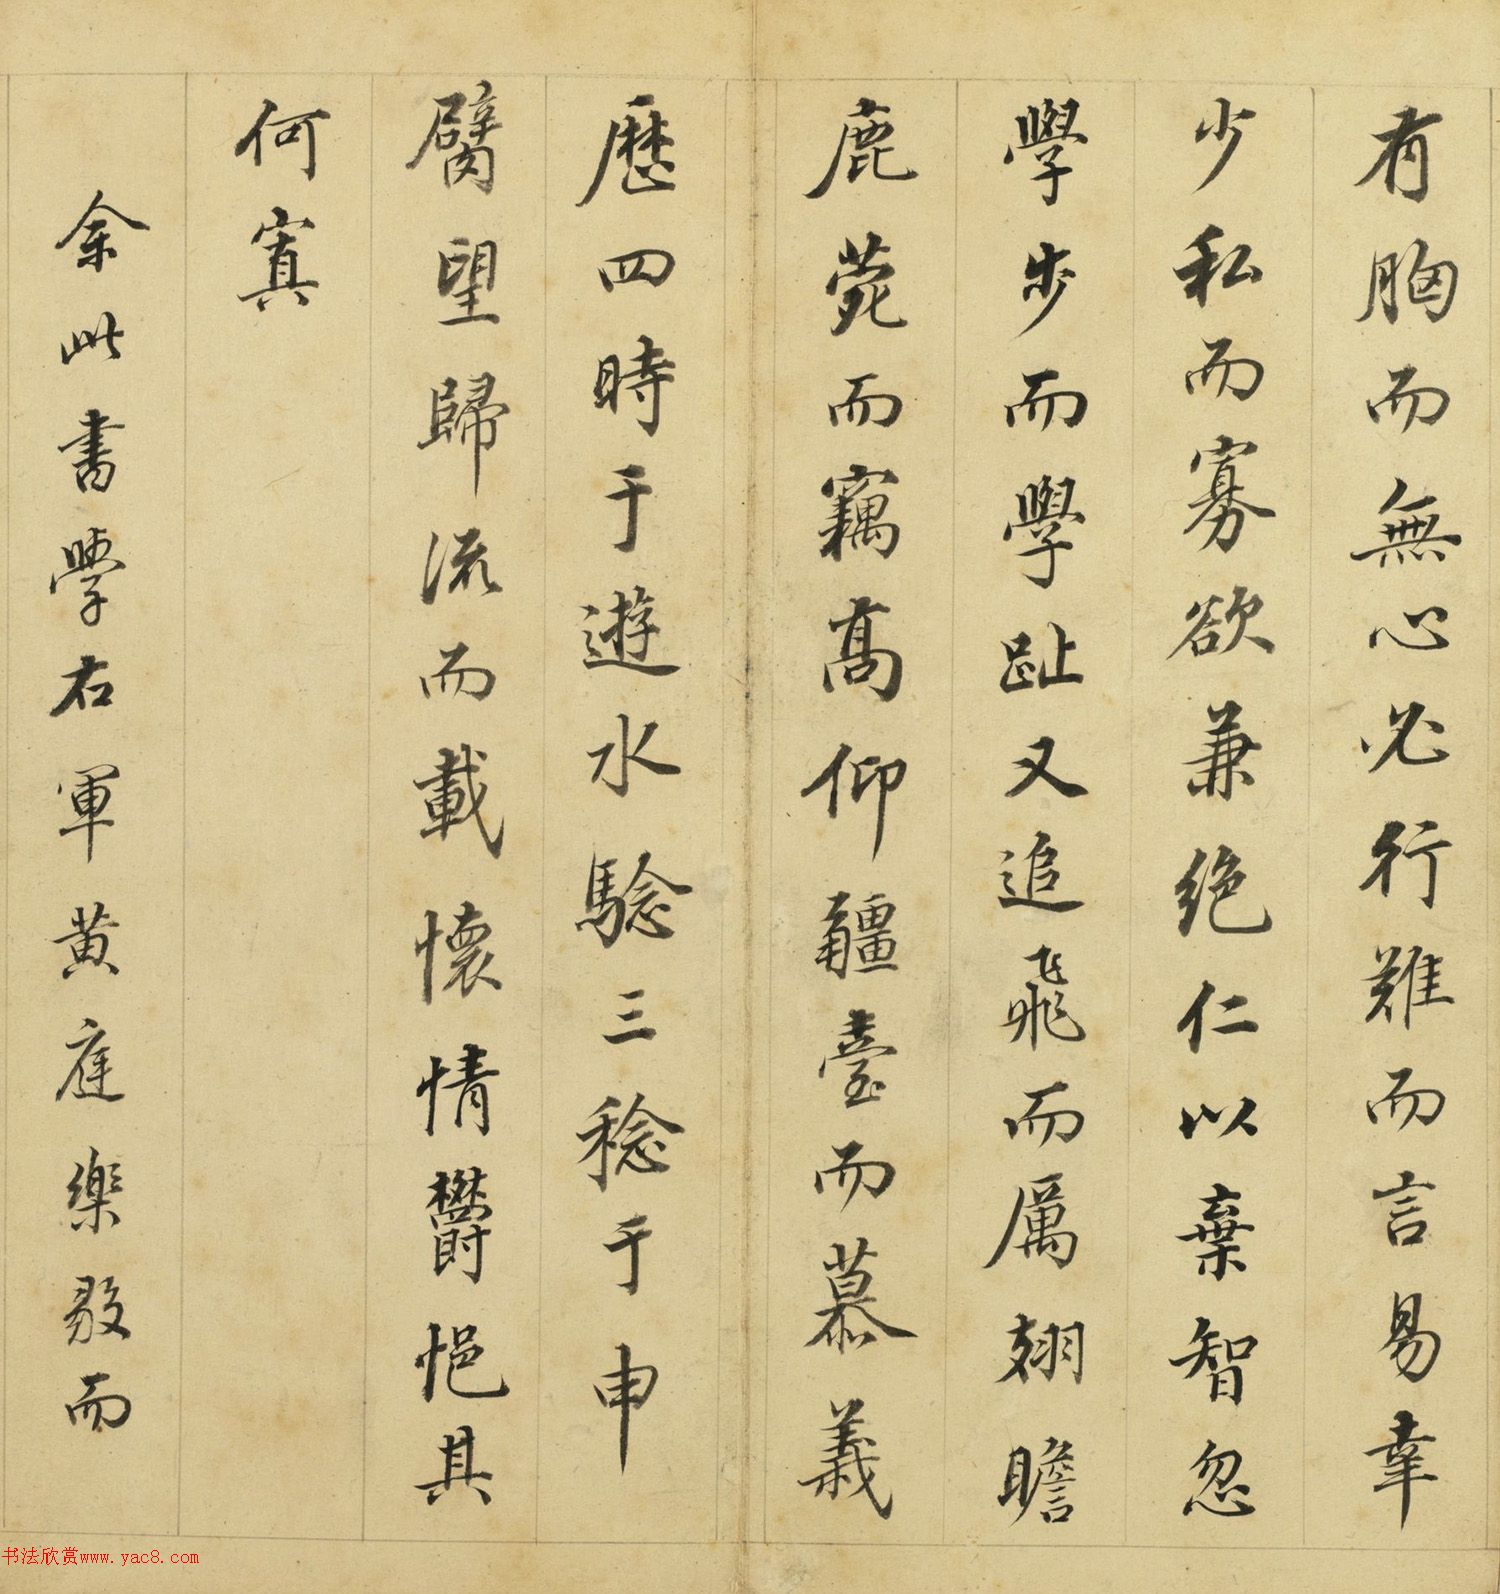 有胸而無心必行難而言易幸
少私而寡欲兼絕仁以棄智忽
學步而學趾又追飛而厲翅瞻
鹿菀而竊高仰疆臺而慕義
歷四時于遊水騐三稔于申
臋望歸流而載懷情欝悒其
何寘
余此書學右軍黃庭樂毅而
书法欣赏www.yac8.com